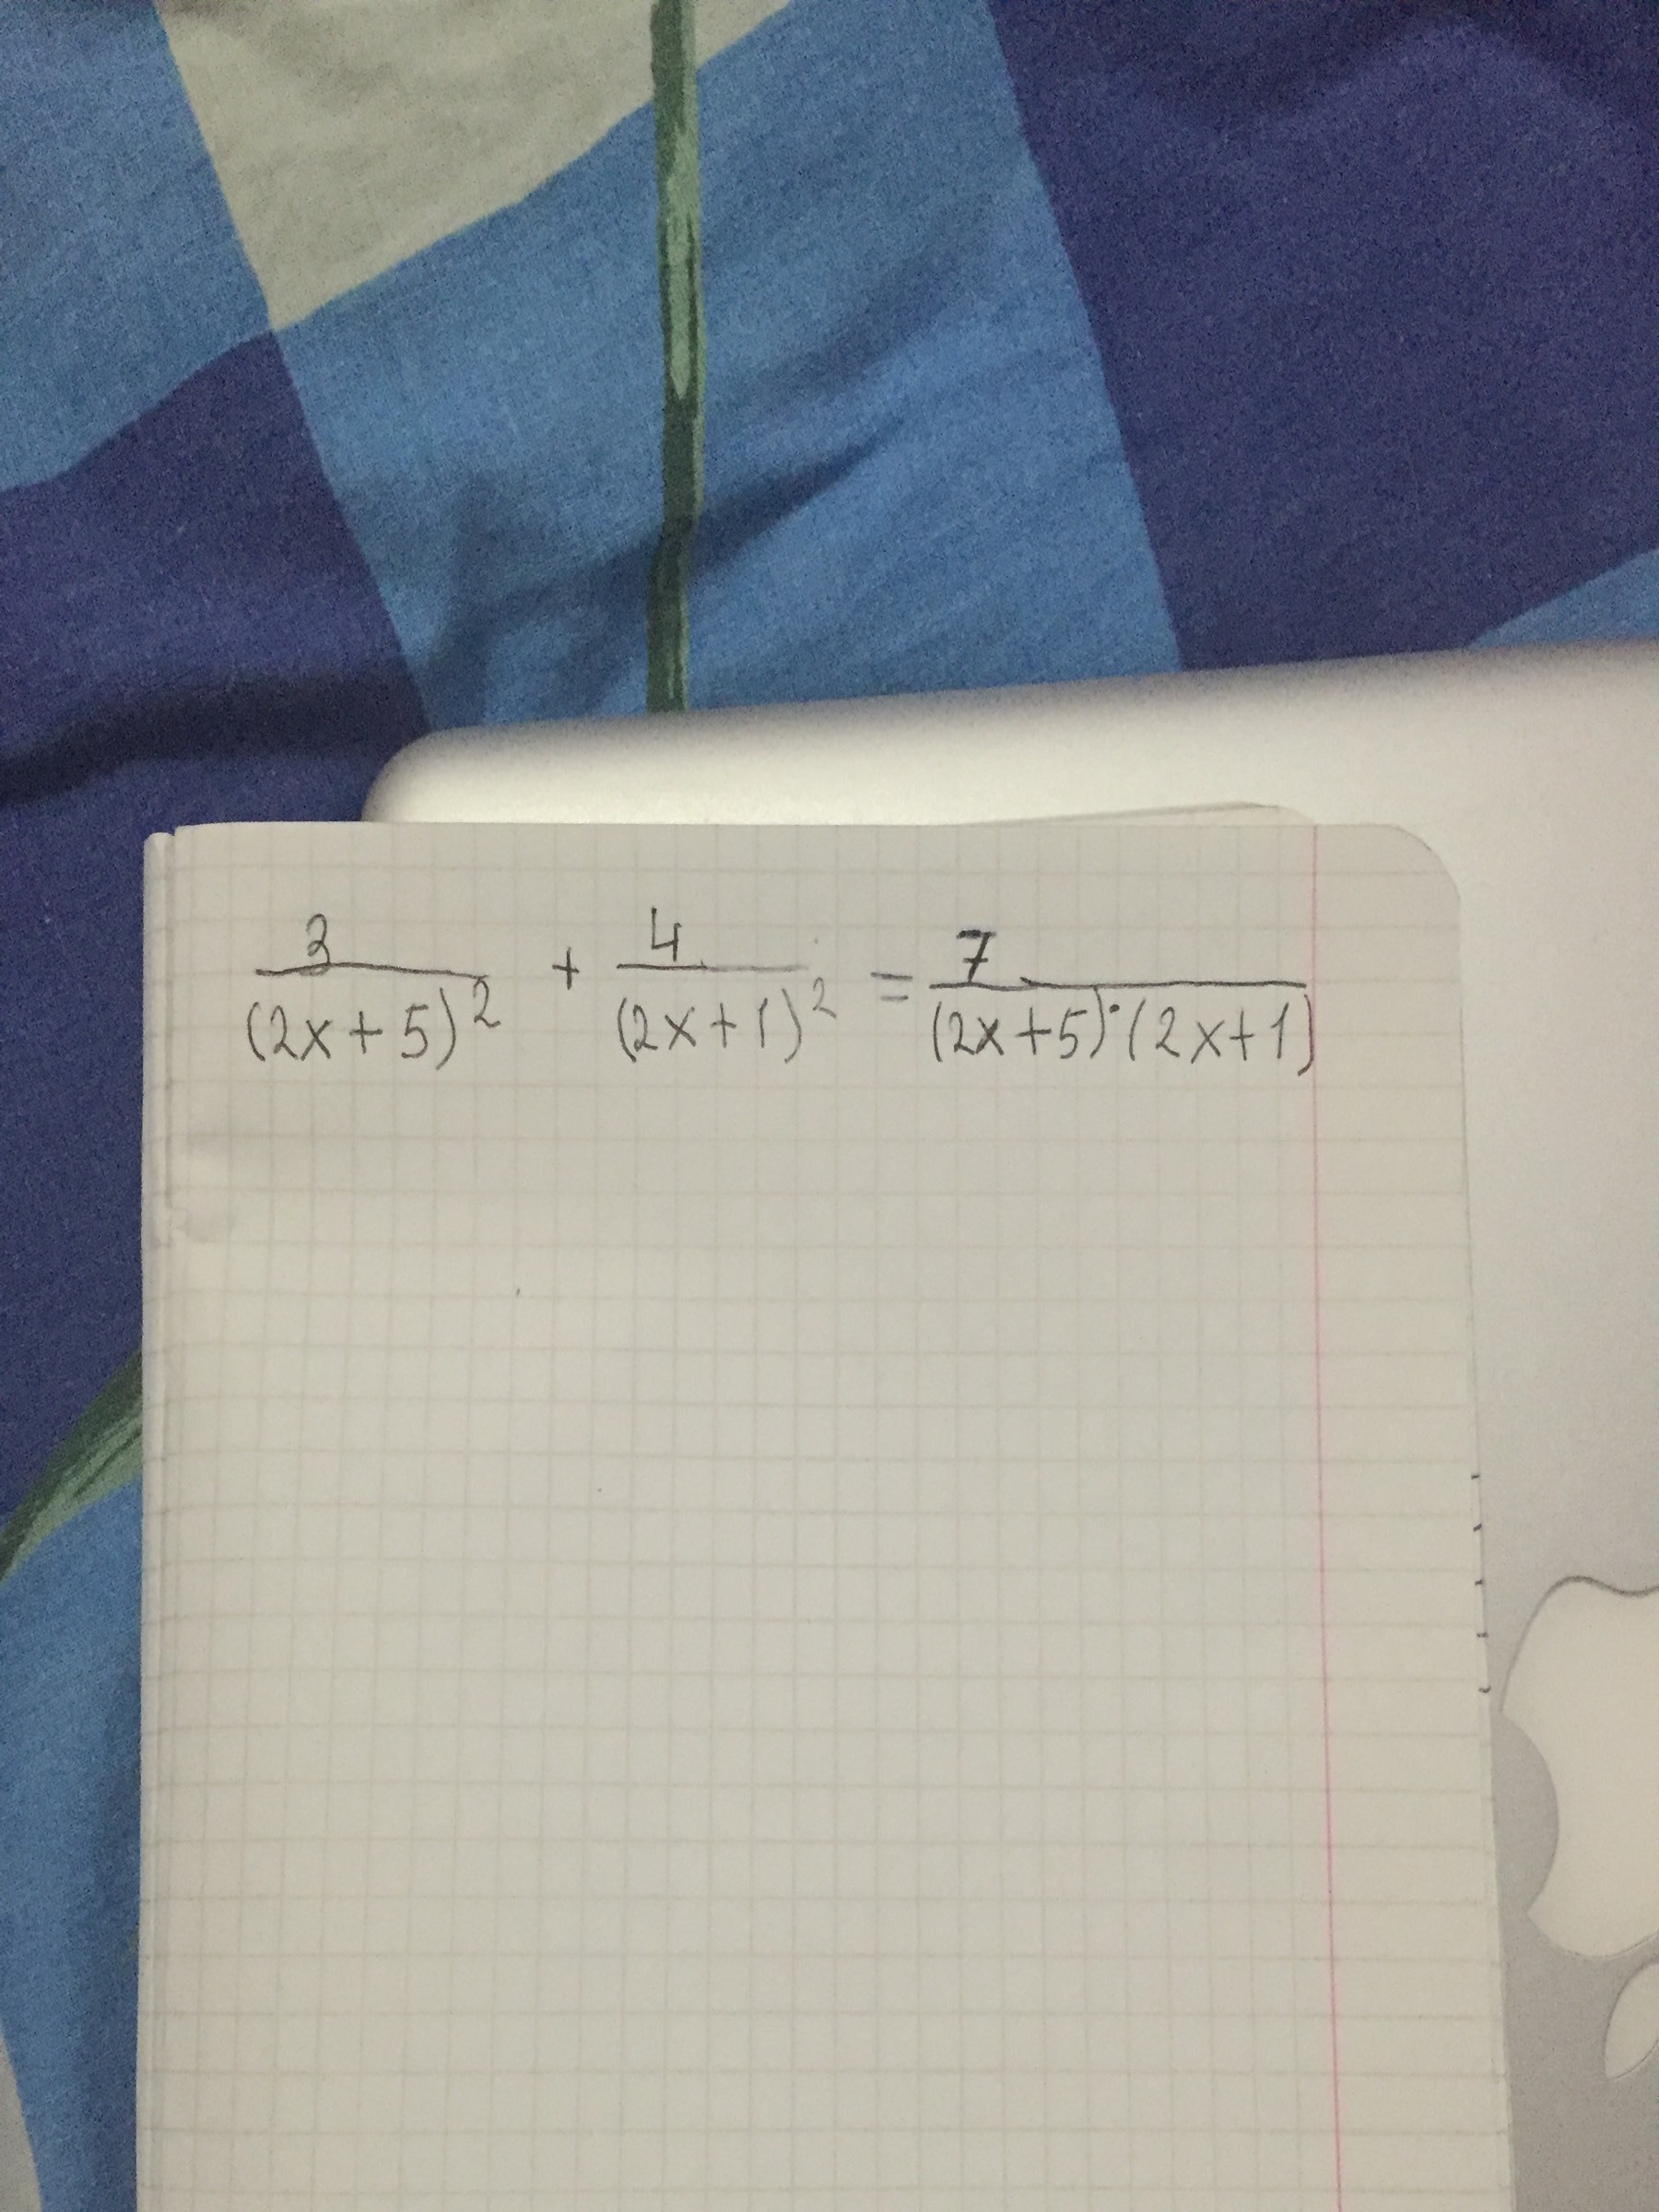 3/(2x+5)² + 4/(2x+1)² = 7/((2x+5)·(2x+1))